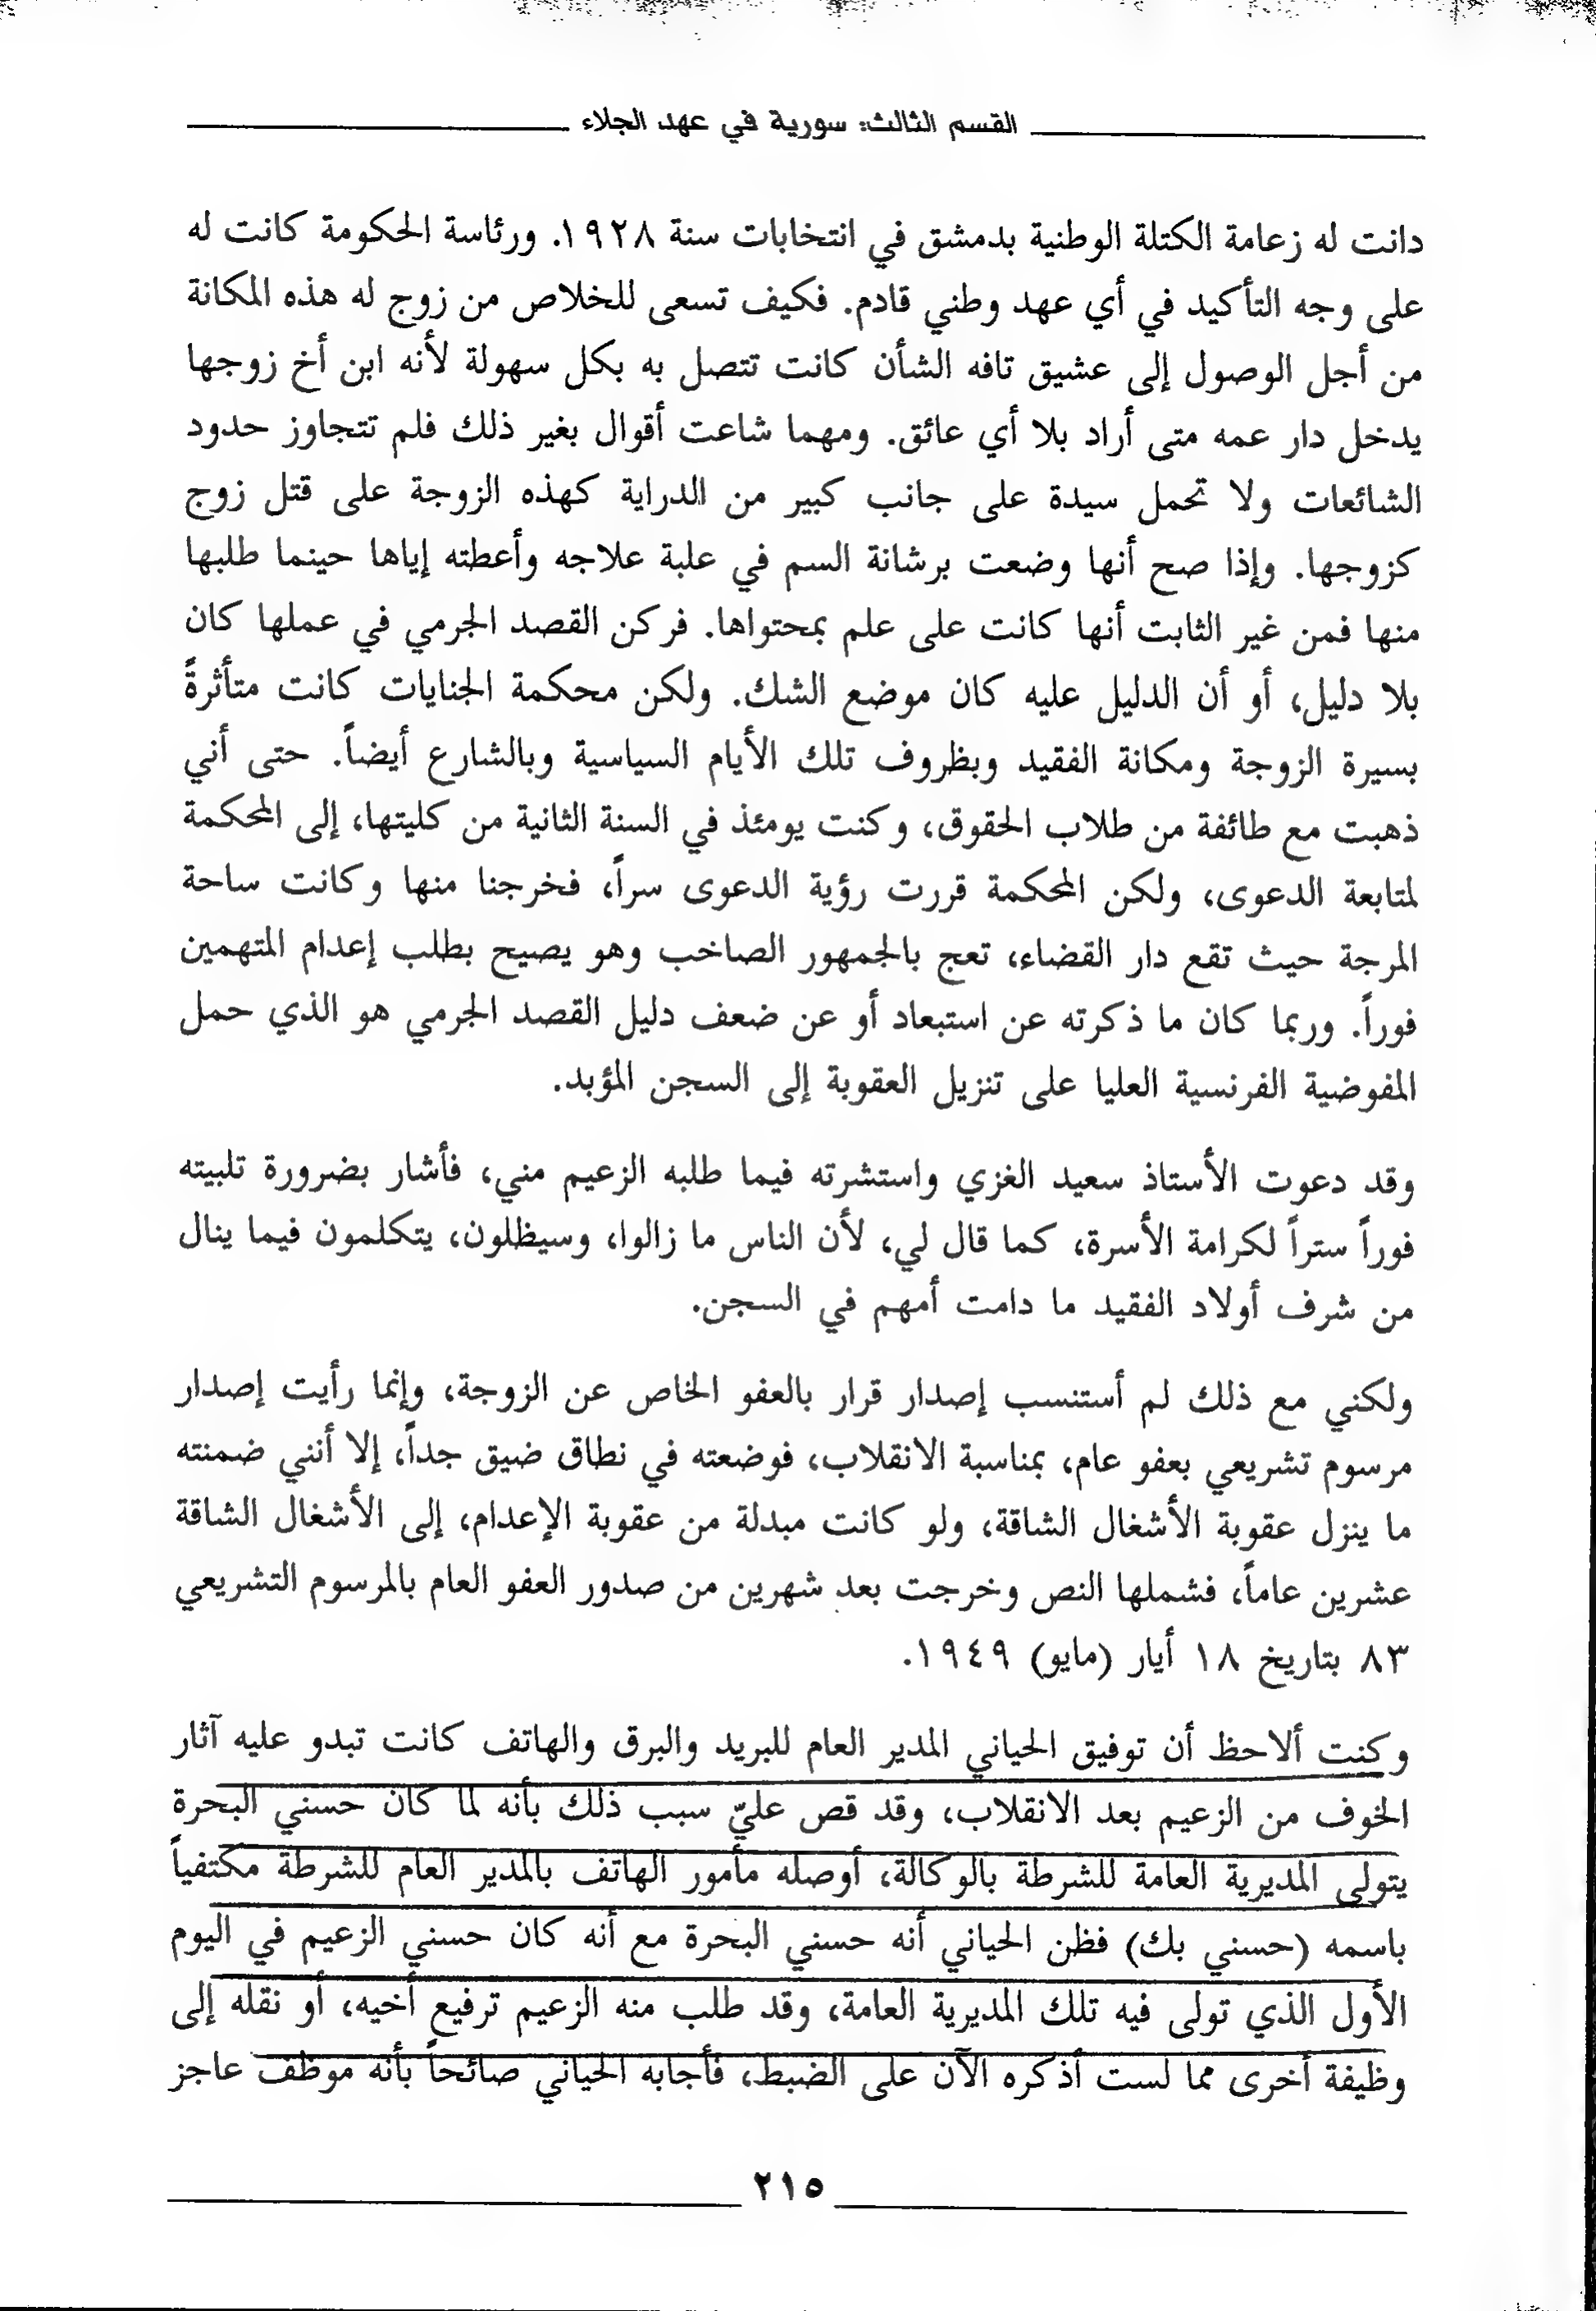 القسم الثالث: سورية في عهد الجلاء
دانت له زعامة الكتلة الوطنية بدمشق في انتخابات سنة ١٩٢٨. ورئاسة الحكومة كانت له
على وجه التأكيد في أي عهد وطني قادم. فكيف تسعى للخلاص من زوج له هذه المكانة
من أجل الوصول إلى عشيق تافه الشأن كانت تتصل به بكل سهولة لأنه ابن أخ زوجها
يدخل دار عمه متى أراد بلا أي عائق. ومهما شاعت أقوال بغير ذلك فلم تتجاوز حدود
الشائعات ولا تحمل سيدة على جانب كبير من الدراية كهذه الزوجة على قتل زوج
كزوجها. وإذا صح أنها وضعت برشانة السم في علبة علاجه وأعطته إياها حينما طلبها
منها فمن غير الثابت أنها كانت على علم بمحتواها. فركن القصد الجرمي في عملها كان
بلا دليل، أو أن الدليل عليه كان موضع الشك. ولكن محكمة الجنايات كانت متأثرةً
بسيرة الزوجة ومكانة الفقيد وبظروف تلك الأيام السياسية وبالشارع أيضاً. حتى أني
ذهبت مع طائفة من طلاب الحقوق، وكنت يومئذ في السنة الثانية من كليتها، إلى المحكمة
لمتابعة الدعوى، ولكن المحكمة قررت رؤية الدعوى سراً، فخرجنا منها وكانت ساحة
المرجة حيث تقع دار القضاء، تعج بالجمهور الصاخب وهو يصيح بطلب إعدام المتهمين
فوراً. وربما كان ما ذكرته عن استبعاد أو عن ضعف دليل القصد الجرمي هو الذي حمل
المفوضية الفرنسية العليا على تنزيل العقوبة إلى السجن المؤبد.
وقد دعوت الأستاذ سعيد الغزي واستشرته فيما طلبه الزعيم مني، فأشار بضرورة تلبيته
فوراً ستراً لكرامة الأسرة، كما قال لي، لأن الناس ما زالوا، وسيظلون، يتكلمون فيما ينال
من شرف أولاد الفقيد ما دامت أمهم في السجن.
ولكني مع ذلك لم أستنسب إصدار قرار بالعفو الخاص عن الزوجة، وإنما رأيت إصدار
مرسوم تشريعي بعفو عام، بمناسبة الانقلاب، فوضعته في نطاق ضيق جداً، إلا أنني ضمنته
ما ينزل عقوبة الأشغال الشاقة، ولو كانت مبدلة من عقوبة الإعدام، إلى الأشغال الشاقة
عشرين عاماً، فشملها النص وخرجت بعد شهرين من صدور العفو العام بالمرسوم التشريعي
٨٣ بتاريخ ١٨ أيار (مايو) ١٩٤٩.
وكنت ألاحظ أن توفيق الحياني المدير العام للبريد والبرق والهاتف كانت تبدو عليه آثار
الخوف من الزعيم بعد الانقلاب، وقد قص عليّ سبب ذلك بأنه لما كان حسني البحرة
يتولى المديرية العامة للشرطة بالوكالة، أوصله مأمور الهاتف بالمدير العام للشرطة مكتفياً
باسمه (حسني بك) فظن الحياني أنه حسني البحرة مع أنه كان حسني الزعيم في اليوم
الأول الذي تولى فيه تلك المديرية العامة، وقد طلب منه الزعيم ترفيع أخيه، أو نقله إلى
وظيفة أخرى مما لست أذكره الآن على الضبط، فأجابه الحياني صائحاً بأنه موظف عاجز
٢١٥